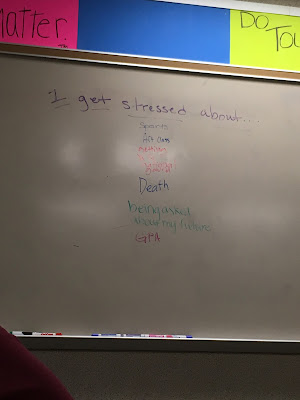 Matter.
DO
TOU
I get stressed about....
Sports
Death
being asked
about my future
GPA